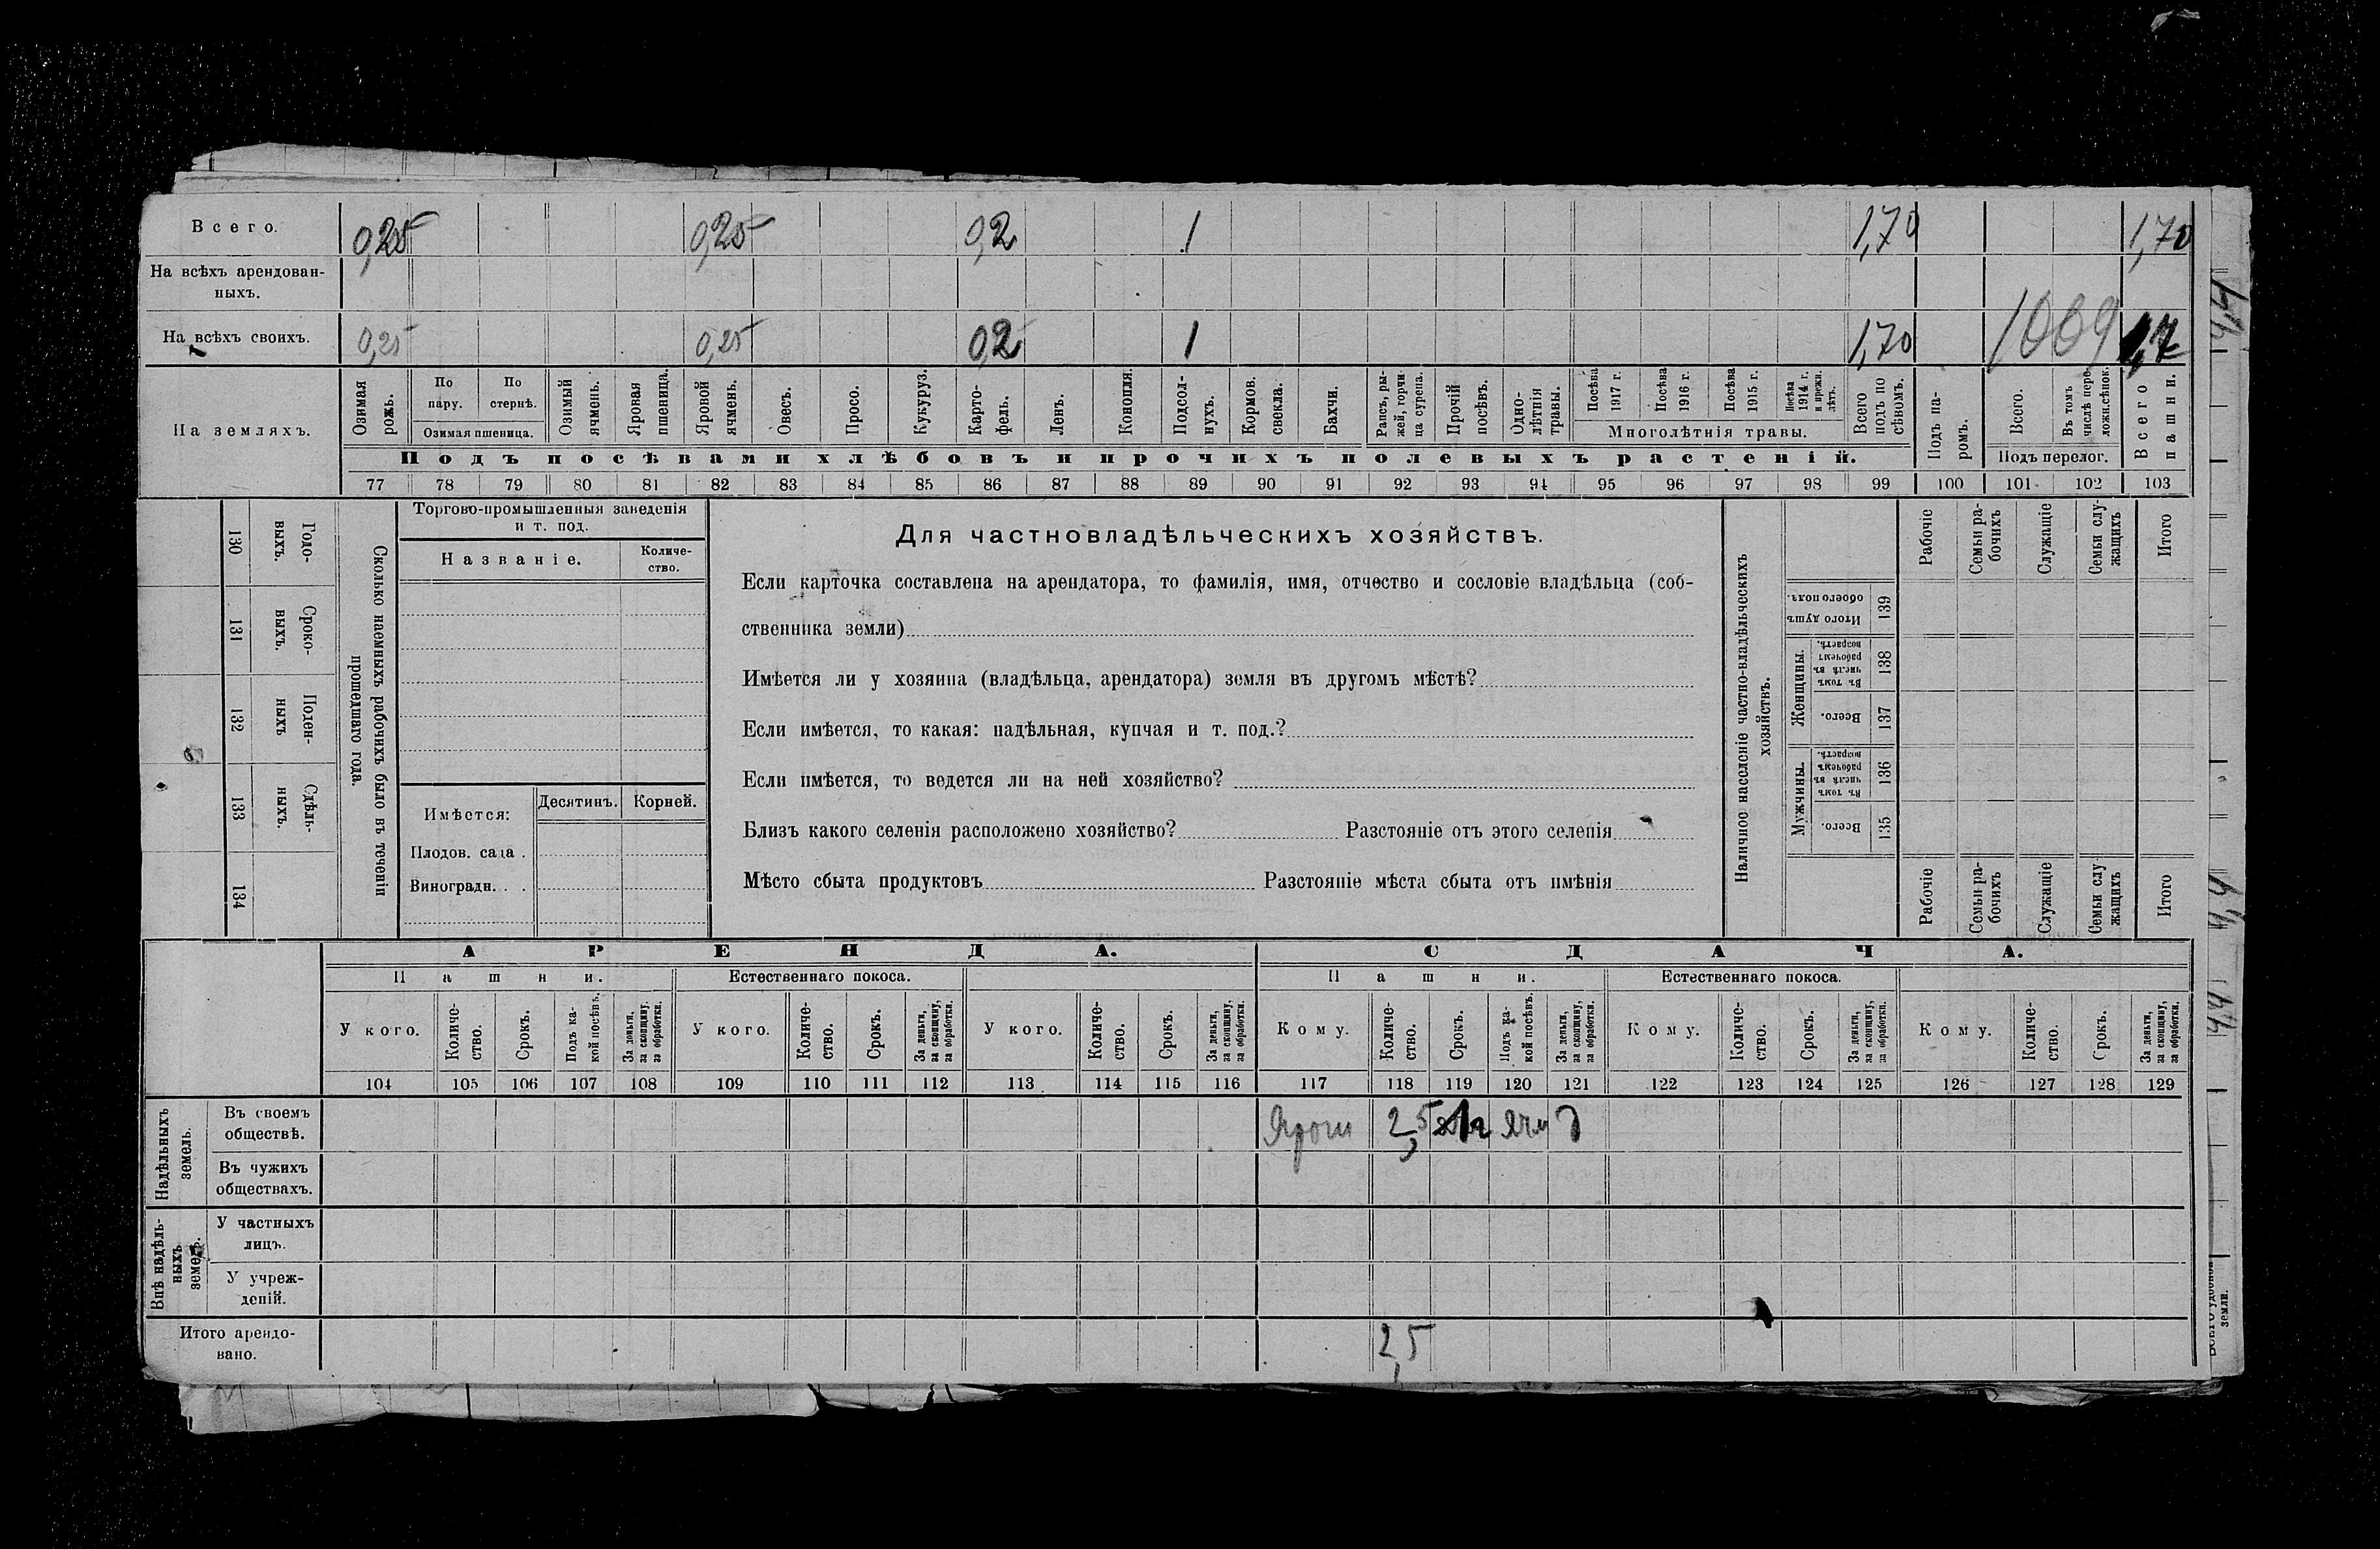 Всего. 0,25 0,25 0,2 1 1,70 1,70
На всѣхъ арендован-
ныхъ.
На всѣхъ своихъ. 0,25 0,25 0,2 1 1,70 1009 1,7
На земляхъ.
Озимая рожь.
По пару.
По стернѣ.
Озимая пшеница.
Озимый ячмень.
Яровая пшеница.
Яровой ячмень.
Овесъ.
Просо.
Кукуруз.
Карто-
фель.
Ленъ.
Конопля.
Подсол-
нухъ.
Кормов. свекла.
Бахчи.
Рапсъ, ры-
жей, горчи-
ца сурепа.
Прочій посѣвъ.
Одно-
лѣтнія травы.
Посѣва 1917 г.
Посѣва 1916 г.
Посѣва 1915 г.
Посѣва 1914 г. и прежн. лѣтъ.
Многолѣтнія травы.
Всего подъ по
сѣвомъ.
Подъ па-
ромъ.
Всего.
Въ томъ числѣ пере-
ложн.сѣнок.
Подъ перелог.
Всего пашни.
Подъ посѣвами хлѣбовъ и прочихъ полевыхъ растеній.
77 78 79 80 81 82 83 84 85 86 87 88 89 90 91 92 93 94 95 96 97 98 99 100 101 102 103
130 Годо-
выхъ.
131 Сроко-
выхъ.
132 Поден-
ныхъ
133 Сдѣль-
ныхъ.
134
Сколько наемныхъ рабочихъ было въ теченіи
прошедшаго года.
Торгово-промышленныя заведенія
и т. под.
Названіе. Количе-
ство.
Имѣется: Десятинъ. Корней.
Плодов. сада .
Виноградн. . .
Для частновладѣльческихъ хозяйствъ.
Если карточка составлена на арендатора, то фамилія, имя, отчество и сословіе владѣльца (соб-
ственника земли)
Имѣется ли у хозяина (владѣльца, арендатора) земля въ другомъ мѣстѣ?
Если имѣется, то какая: надѣльная, купчая и т. под.?
Если имѣется, то ведется ли на ней хозяйство?
Близъ какого селенія расположено хозяйство? Разстояніе отъ этого селенія
Мѣсто сбыта продуктовъ Разстояніе мѣста сбыта отъ имѣнія
Наличное населеніе частно-владѣльческихъ
хозяйствъ.
Рабочіе
Семьи ра-
бочихъ
Служащіе
Семьи слу-
жащихъ
Итого
Итого душъ обоего пола. 139
Женщины.
Въ томъ числѣ въ рабочемъ возрастѣ. 138
Всего. 137
Мужчины.
Въ томъ числѣ въ рабочемъ возрастѣ. 136
Всего. 135
Рабочіе
Семьи ра-
бочихъ
Служащіе
Семьи слу
жащихъ
Итого
АРЕНДА. СДАЧА.
Пашни. Естественнаго покоса. Пашни. Естественнаго покоса.
У кого.
Количе-
ство.
Срокъ.
Подъ ка-
кой посѣвъ.
За деньги, за скопщину, за обработки.
У кого.
Количе-
ство.
Срокъ.
За деньги, за скопщину, за обработки.
У кого.
Количе-
ство.
Срокъ.
За деньги, за скопщину, за обработки.
Кому.
Количе-
ство.
Срокъ.
Подъ ка-
кой посѣвъ.
За деньги, за скопщину, за обработки.
Кому.
Количе-
ство.
Срокъ.
За деньги, за скопщину, за обработки.
Кому.
Количе-
ство.
Срокъ.
За деньги, за скопщину, за обработки.
104 105 106 107 108 109 110 111 112 113 114 115 116 117 118 119 120 121 122 123 124 125 126 127 128 129
Надѣльныхъ
земель.
Въ своемъ
обществѣ. 2,5 Ячм д
Въ чужихъ
обществахъ.
Внѣ надѣль-
ныхъ
земель.
У частныхъ
лицъ.
У учреж-
деній.
Итого арендо-
вано. 2,5
Всего удобной
земли.